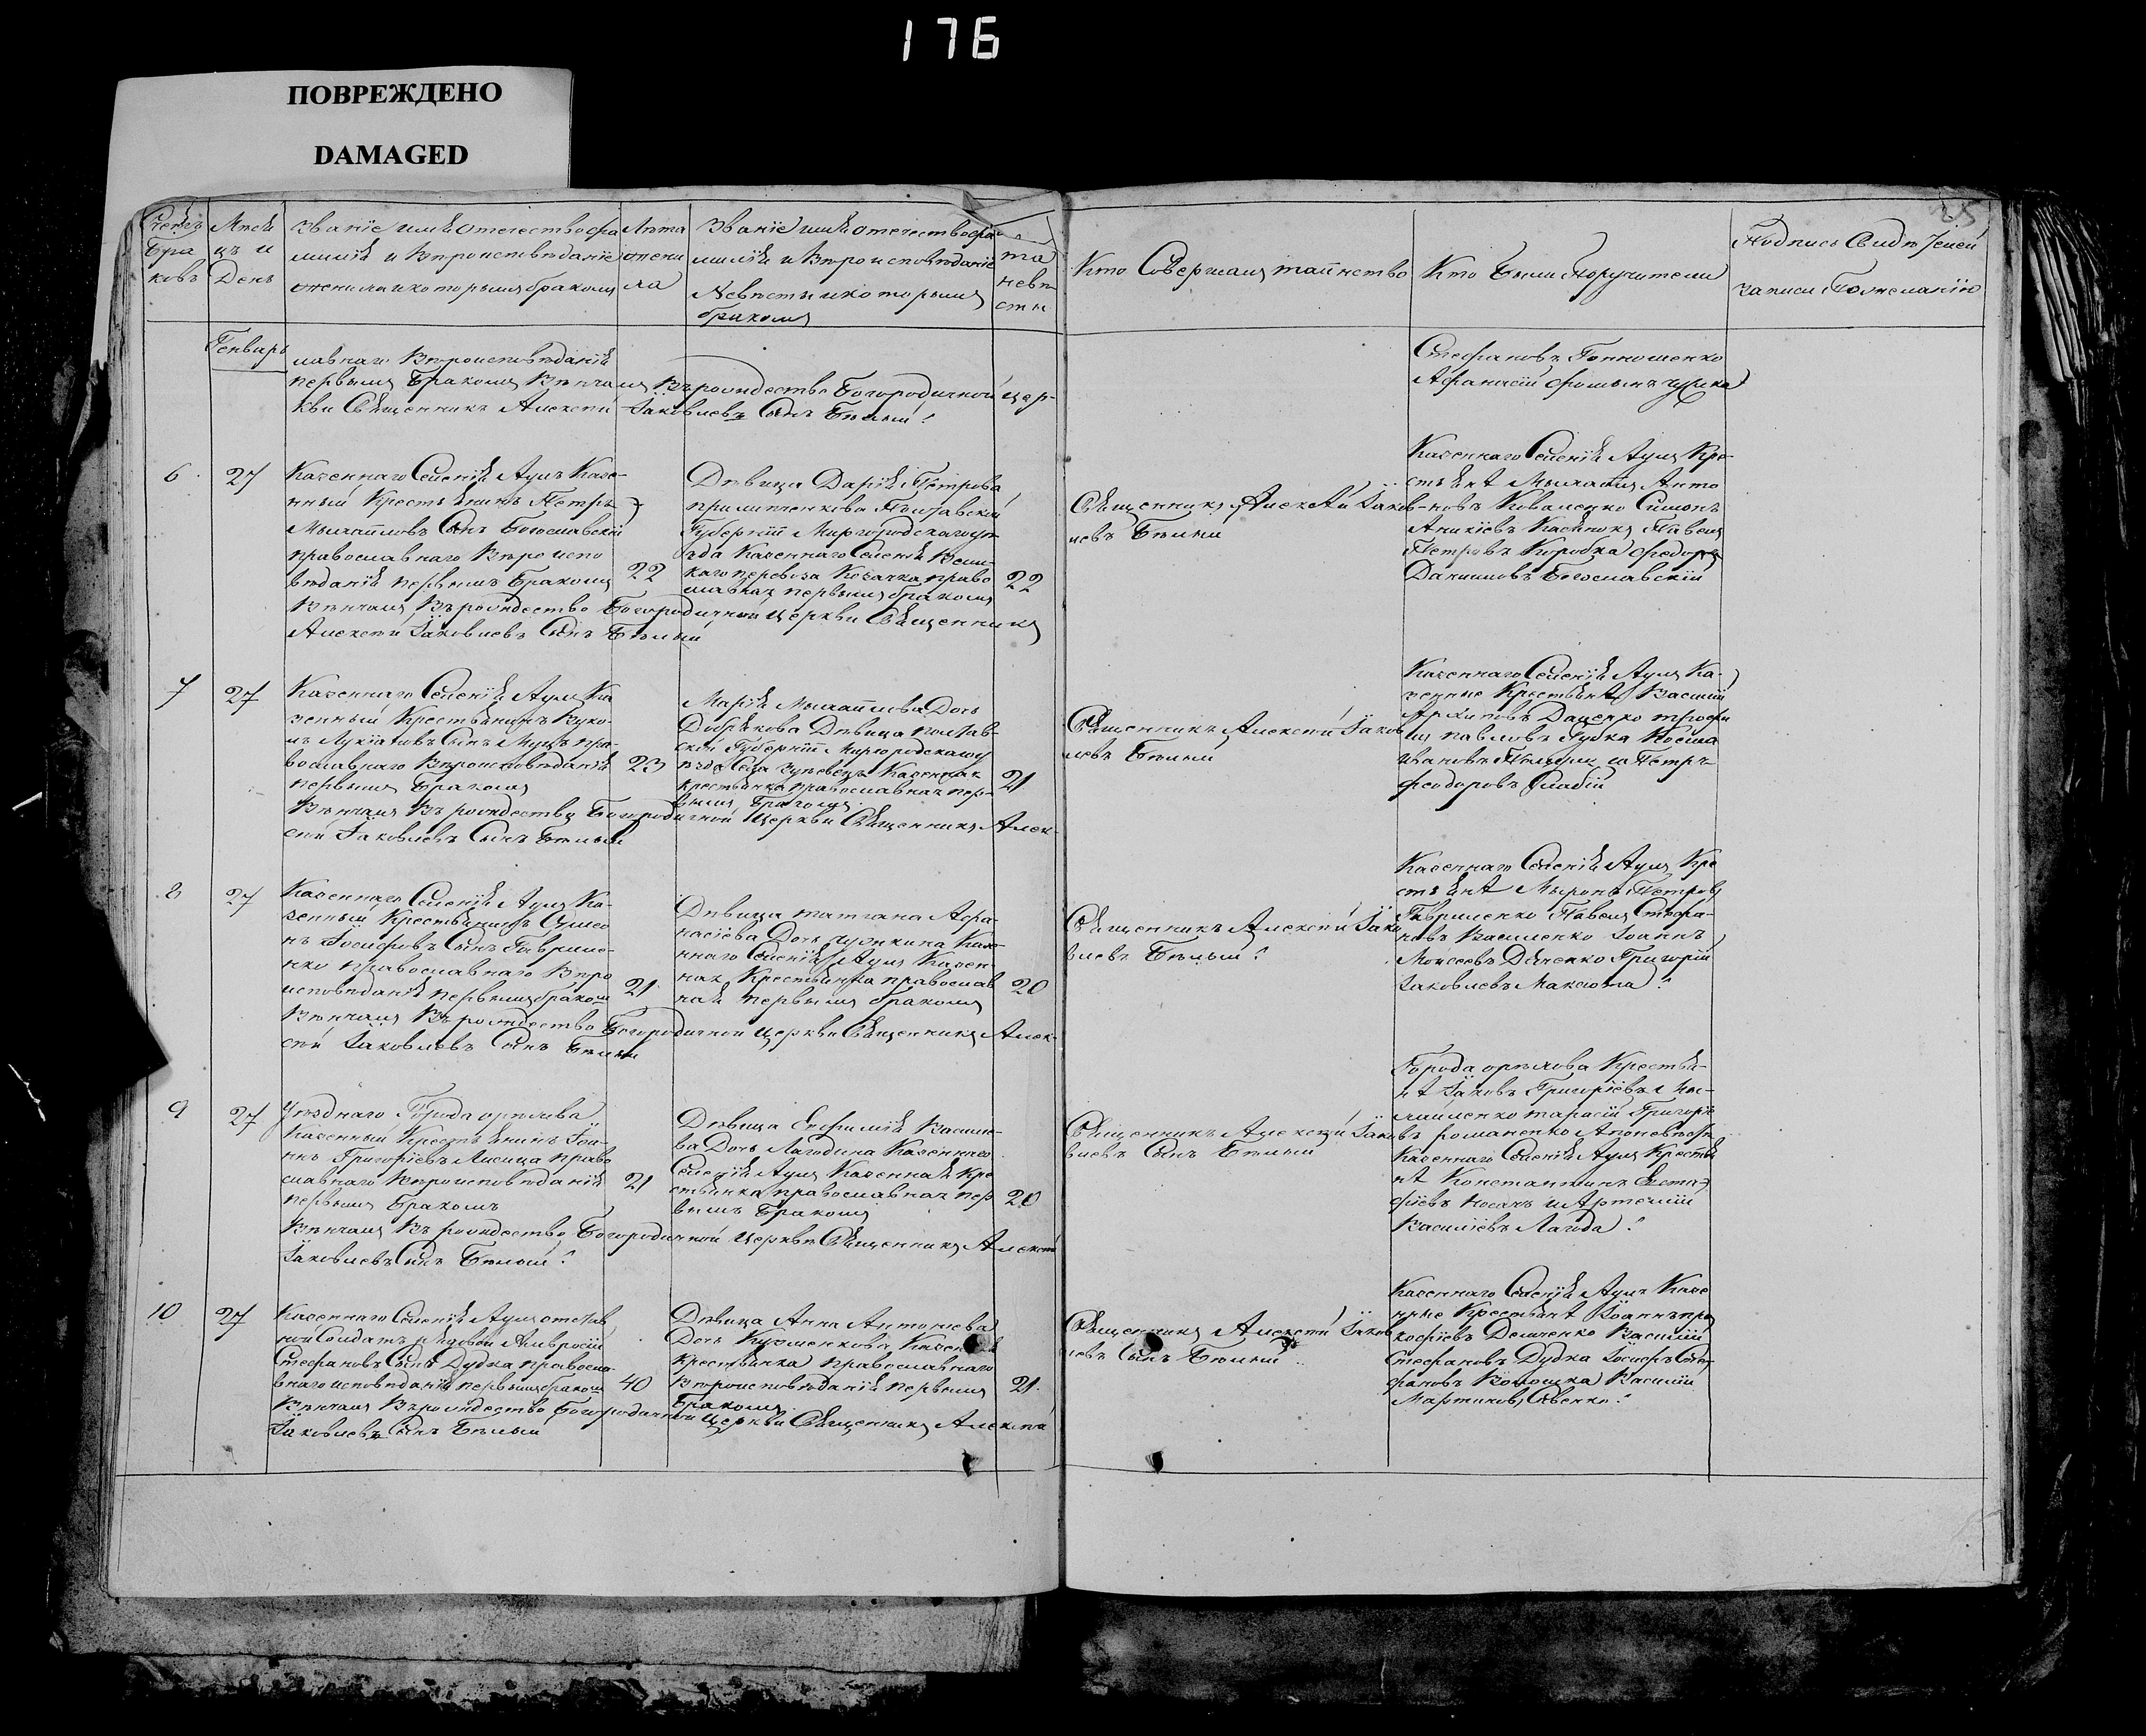 176
ПОВРЕЖДЕНО
DAMAGED
25
Счетъ
Бра
ковъ
Мѣся
цъ и
День
Званіе имя отечество фа
милія и Вѣроисповѣданіе
жениха и которымъ бракомъ
Лѣта
жени
ха
Званіе имя отечество фа
милія и Вѣроисповѣданіе
Невѣсты и которымъ
бракомъ
та
невѣ
сты
Кто Совершалъ таинство
Кто Были Поручители
Подпись Свидѣтелей
записи По желанію
Генварь
лавнаго Вѣроисповѣданія
первымъ Бракомъ Вѣнчалъ Въ рождество Богородичной цер-
кви Священникъ Алексѣй Іаковлевъ Сынъ Бѣлый
Стефановъ
Афанасій фоминъ
6
27
Казеннаго Селенія Аулъ Казе-
нный Крестьянинъ Петръ
Михайловъ Сынъ Богославскій
православнаго Вѣроиспо
вѣданія первымъ Бракомъ
22
Вѣнчалъ Въ рождество Богородичной Церкви Священникъ
Алексѣй Іаковлевъ Сынъ Бѣлый
Дѣвица Дарія Петрова
Полтавской
Губерніи Миргородскаго уѣ
зда Казеннаго Селенія Вели-
каго перевоза Козачка право
славная первымъ бракомъ
22
Священникъ Алексѣй Іаков-
левъ Бѣлый
Казеннаго Селенія Аулъ Кре-
стьяне Михаилъ Анто
новъ Коваленко Симонъ
Аникіевъ Павелъ
Петровъ Коробка федоръ
Даниловъ Богославскій
7
27
Казеннаго Селенія Аулъ Ка
зенный Крестьянинъ Вуко-
лъ Лукіановъ Сынъ Муцъ пра-
вославнаго Вѣроисповѣданія
23
первымъ Бракомъ
Вѣнчалъ Въ рождество Богородичной Церкви Священникъ Алек-
сѣй Іаковлевъ Сынъ Бѣлый
Марія Михайлова Дочь
Дѣвица полтав-
ской Губерніи Миргородскаго у
ѣзда Села Зуевецъ Казенная
крестьянка православная пер-
вымъ Бракомъ
21
Священникъ Алексѣй Іаков
левъ Бѣлый
Казеннаго Селенія Аулъ Ка-
зенные Крестьяне Василій
Архиповъ Даценко трофи
мъ павловъ Косма
Ивановъ и Петръ
феодоровъ
8
27
Казеннаго Селенія Аулъ Ка-
зенный Крестьянинъ Симео
нъ Іосифовъ Сынъ Гаврилен-
ко православнаго Вѣро
исповѣданія первымъ бракомъ
21
Вѣнчалъ Въ рождество Богородичной Церкви Священникъ Алек-
сѣй Іаковлевъ Сынъ Бѣлый
Дѣвица татіана Афа-
насіева Дочь Казе-
ннаго Селенія Аулъ Казен-
ная Крестьянка православ
ная первымъ бракомъ
20
Священникъ Алексѣй Іако
влевъ Бѣлый
Казеннаго Селенія Аулъ Кре
стьяне Миронъ Петровъ
Гавриленко Павелъ Стефа-
новъ Василенко Іоаннъ
Моисеевъ Григорій
Іаковлевъ Максюта
9
27
Уѣзднаго Города орѣхова
Казенный Крестьянинъ Іоа-
ннъ Григоріевъ Лисица право
славнаго Вѣроисповѣданія
21
первымъ Бракомъ
Вѣнчалъ Въ рождество Богородичной Церкви Священникъ Алексѣй
Іаковлевъ Сынъ Бѣлый
Дѣвица Евфимія Василіе-
ва Дочь Лагодина Казеннаго
Селенія Аулъ Казенная Кре
стьянка православная пер
вымъ Бракомъ
20
Священникъ Алексѣй Іако
влевъ Сынъ Бѣлый
Города орѣхова Крестья-
не Іаковъ Григоріевъ
тарасій Григорі
въ романенко
Казеннаго Селенія Аулъ Крестья
не Константинъ Евста-
фіевъ Носачъ и Артемій
Василіевъ Лагода
10
27
Казеннаго Селенія Аулъ отстав
ной Солдатъ рядовой Амвросій
Стефановъ Сынъ Дудка правосла-
внаго исповѣданія первымъ бракомъ
40
Вѣнчалъ Въ рождество Богородичной Церкви Священникъ Алексѣй
Іаковлевъ Сынъ Бѣлый
Дѣвица Анна Антоніева
Дочь Кузменкова
крестьянка православнаго
Вѣроисповѣданія первымъ
Бракомъ
21
Священникъ Алексѣй Іаков
левъ Сынъ Бѣлый
Казеннаго Селенія Аулъ Казе
нные Крестьяне Іоаннъ про
кофіевъ Демченко Василій
Стефановъ Дудка Іосифъ Сте
фановъ Волошка Василій
Мартиновъ Савенко